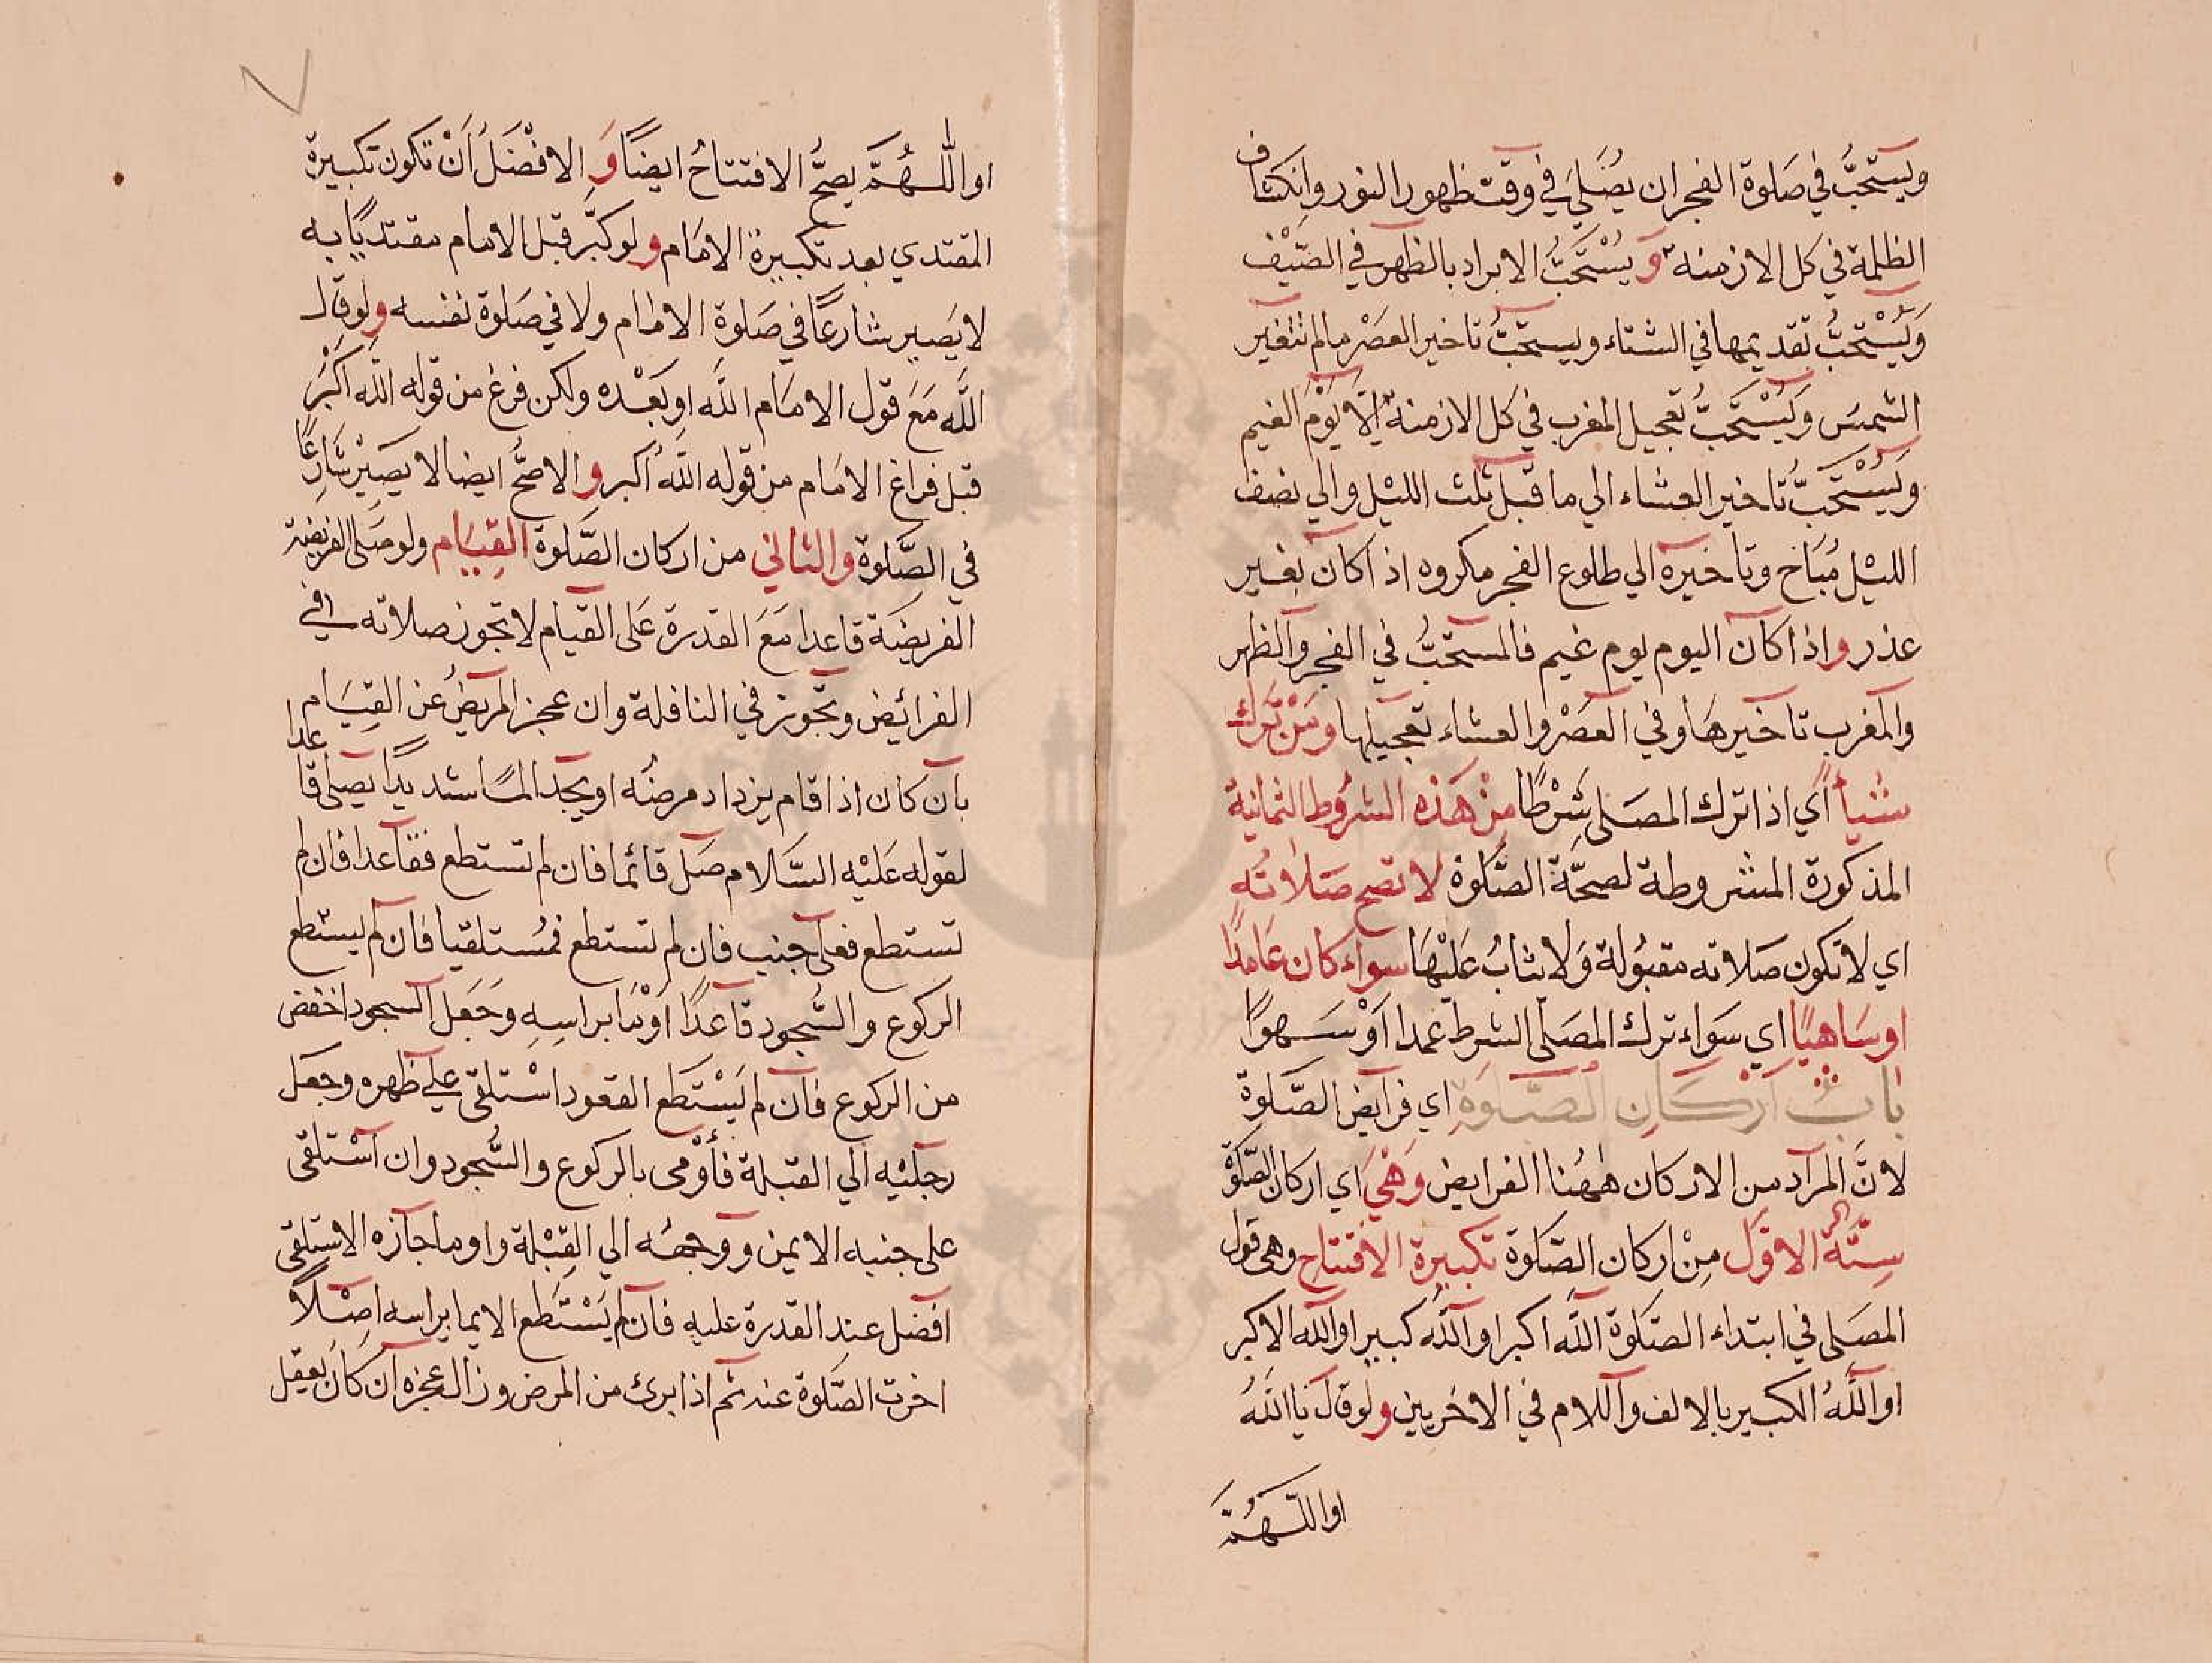 ويستحبُّ في صَلوة الفجر ان يُصَلي في وقت ظهور النور وانكشاف
الظلمة في كل الازمنه وَ يُسْتَحَبُّ الابراد بالظهر في الصَّيْف
وَيُسْتحَبُّ تقديمها في الشتاء ويستحَبُّ تاخير العصْر مالم تتغير
الشمسُ وَيُسْتَحَبُّ تعجيل المغرب في كل الازمنة اِلَّا يَوْمَ الغيم
وَيُسْتَحَبُّ تاخير العشاء الي ما قبل ثلث الليْل والي نصف
الليْل مُبَاح وتاخيره الي طلوع الفجر مكروه اذا كان بغير
عذر واذا كان اليوم يوم غيم فالمستحبُّ في الفجر والظهر
والمغرب تاخيرهَا وفي العصْر والعشاء تعجيلها ومَنْ تَرَك
شيأً اي اذا ترك المصَلى شَرْطًا مِنْ هَذِه الشرُوط الثمانية
المذكورة المشروطة لصحَّة الصَّلوة لا تصح صَلاتُه
اي لا تكون صَلاته مقبُولة وَلا يثابُ عَلَيْهَا سواء كان عَامدًا
او سَاهِيًا اي سَواء ترك المصَلى الشرط عمدا اَوْ سَهوًا
بابُ اَرْكَانِ الصَّلوَةِ اي فرايض الصَّلوة
لانَّ المراد من الاركان هٰهُنا الفرايض وَهْيَ اي اركان الصَّلوة
سِتَّة الاوَّل مِنْ اركان الصَّلوة تكبيرة الافتتاح وهى قول
المصَلى في ابتداء الصَلوة الله اكبر او الله كبير او الله الاكبر
او اللهُ الكبير بالالف واللام في الاخريين ولو قال يا اللهُ
او اللّهُمَّ
او اللّهُمَّ يصحُّ الافتتاحُ ايضًا وَ الافْضَلُ اَنْ تكون تكبيرة
المقتدي بعد تكبيرة الامَام ولو كبّر قبل الامام مقتديًا به
لا يَصير شارعًا في صَلوة الامام ولا في صَلوة نفسه ولو قال
اللَّه مَعَ قول الامَام اللَّه او بَعْده ولكن فرغ من قوله الله اكبَرُ
قبل فراغ الامَام من قوله اللَّه اكبر والاصحُّ ايضا لا يصَيْر شَارِعًا
في الصَّلوة والثاني من اركان الصَّلوة القِيَام ولو صَلى الفريضة
الفريضَة قاعدا مَعَ القدرة عَلى القيام لا تجوز صلاته في
الفرائض وتجوز في النافلة وان عجز المريضُ عن القِيَام
بان كان اذا قام يزداد مرضُه او يجد المًا شديدًا يصلى قاعدا
لقوله عَليْه السَّلام صَل قائما فان لم تستطع فقاعدا فان لم
تستطع فعلى جنب فان لم تستطع فمُستلقيا فان لم يستطع
الركوع والسُّجود قاعدًا اَوْمَا براسِه وَجَعَل السجود اخفض
من الركوع فان لم يَسْتَطع القعود اسْتلقى علي ظهره وجعَل
رجلَيْه الي القبلة فأوْمى بالركوع والسُّجود وان اسْتلقى
على جنبه الايمن ووجهُه الي القِبْلة واوما جازه الاستلقى
افضل عند القدرة عليه فان لم يَسْتَطع الايما براسه اصْلًا
اخرت الصَّلوة عنه ثم اذا برئ من المرض وزال عجزه ان كانَ يعقل